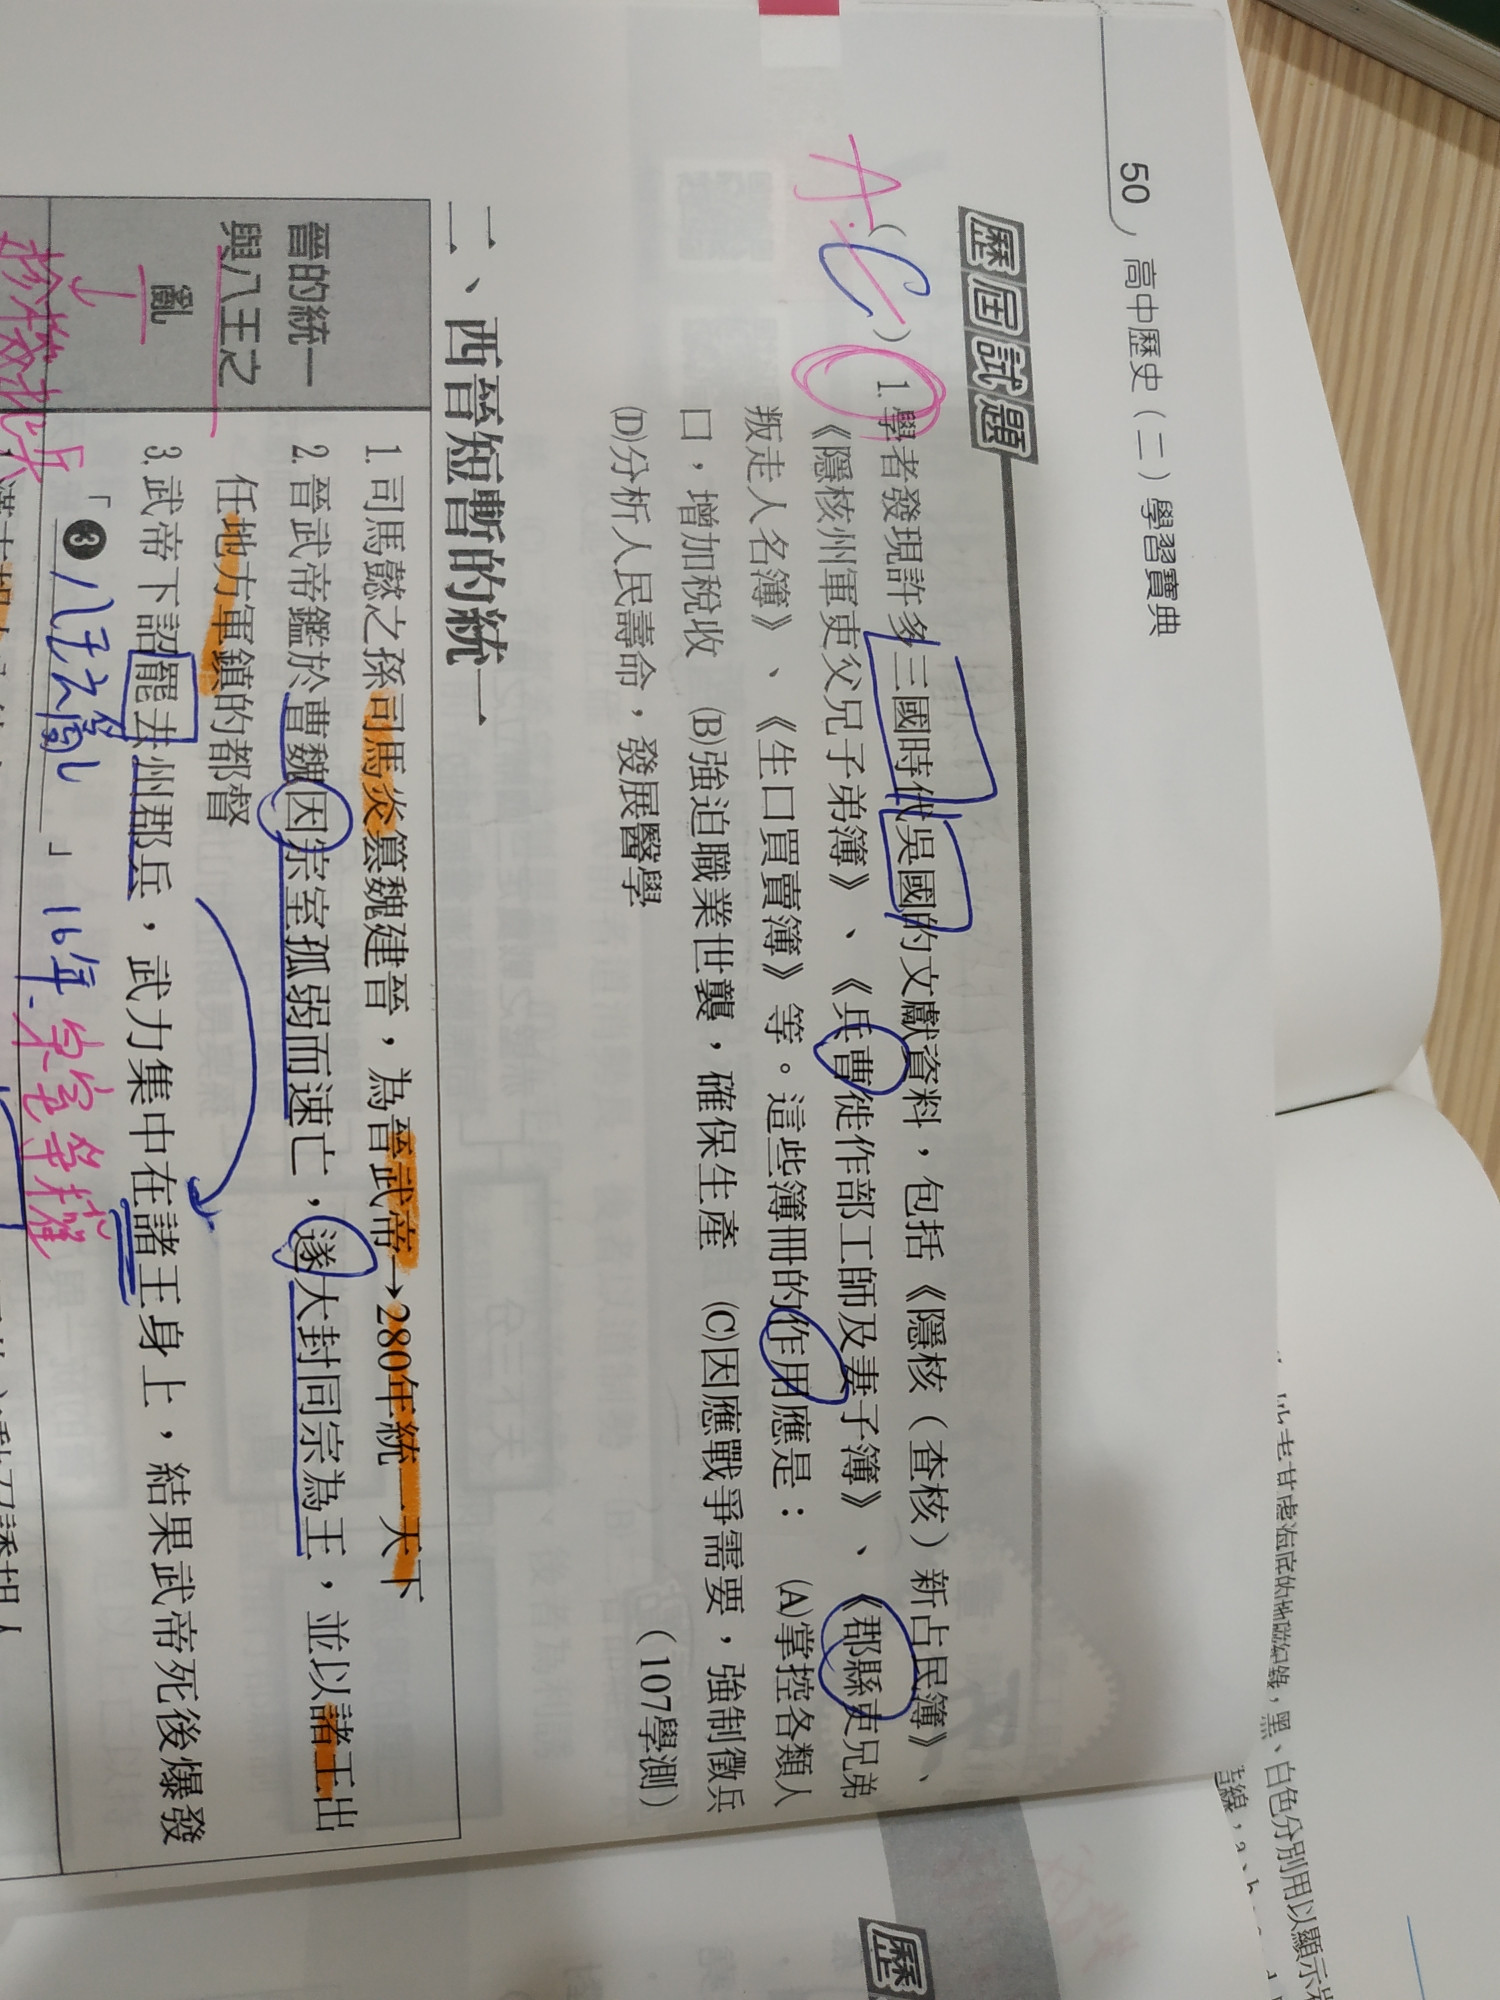 50 高中歷史(二)學習寶典
歷屆試題
A.(C)1.學者發現許多三國時代吳國的文獻資料，包括《隱核（查核）新占民簿》、
《隱核州軍吏父兄子弟簿》、《兵曹徙作部工師及妻子簿》、《郡縣吏兄弟
叛走人名簿》、《生口買賣簿》等。這些簿冊的作用應是： (A)掌控各類人
口，增加稅收 (B)強迫職業世襲，確保生產 (C)因應戰爭需要，強制徵兵
(D)分析人民壽命，發展醫學 （107學測）
二、西晉短暫的統一
晉的統一
與八王之
亂
1.司馬懿之孫司馬炎篡魏建晉，為晉武帝→280年統一天下
2.晉武帝鑑於曹魏因宗室孤弱而速亡，遂大封同宗為王，並以諸王出
任地方軍鎮的都督
3.武帝下詔罷去州郡兵，武力集中在諸王身上，結果武帝死後爆發
「❸八王之亂」16年.宗室爭權
歷